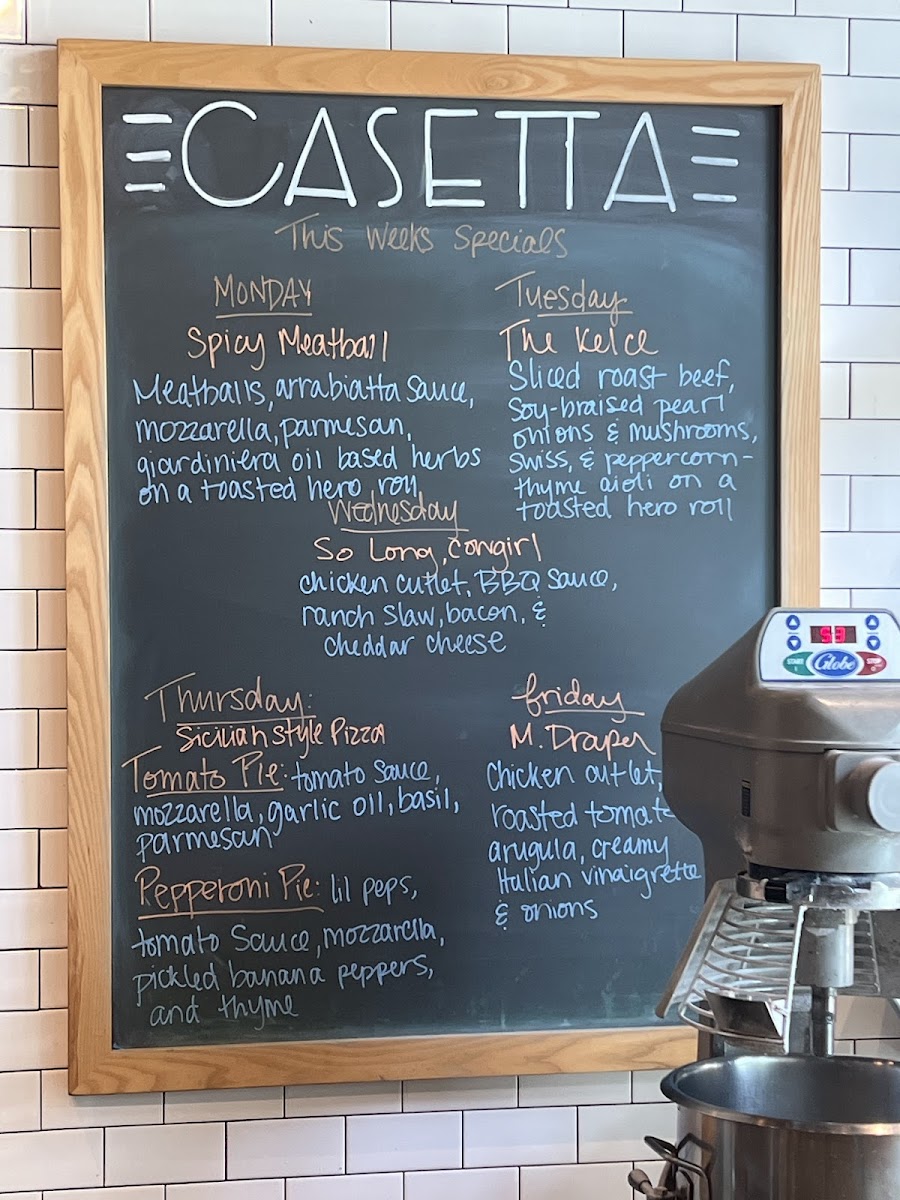 CASETTA
This Weeks Specials
MONDAY
Spicy Meatball
Meatballs, arrabiatta sauce,
mozzarella, parmesan,
giardiniera oil based herbs
on a toasted hero roll
Tuesday
The Kelce
Sliced roast beef,
Soy-braised pearl
onions & mushrooms,
swiss, & peppercorn-
thyme aioli on a
toasted hero roll
Wednesday
So Long, Cowgirl
chicken cutlet, BBQ sauce,
ranch slaw, bacon, &
cheddar cheese
Thursday:
Sicilian Style Pizza
Tomato Pie: tomato sauce,
mozzarella, garlic oil, basil,
parmesan
Pepperoni Pie: lil peps,
tomato sauce, mozzarella,
pickled banana peppers,
and thyme
friday
M. Draper
Chicken cutlet,
roasted tomato
arugula, creamy
Italian vinaigrette
& onions
53
START
Globe
STOP